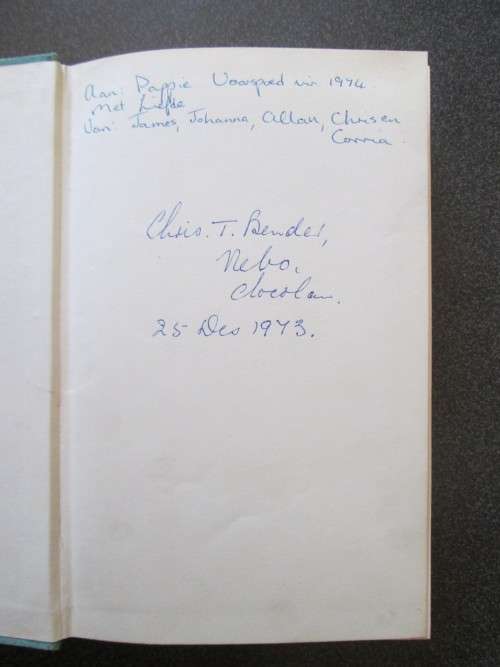 Aan: Pappie Voorspoed vir 1974
Met Liefde
Van: James, Johanna, Allan, Chris en
Corria.
Chris. T. Bender,
Nebo,
Clocolan.
25 Des 1973.